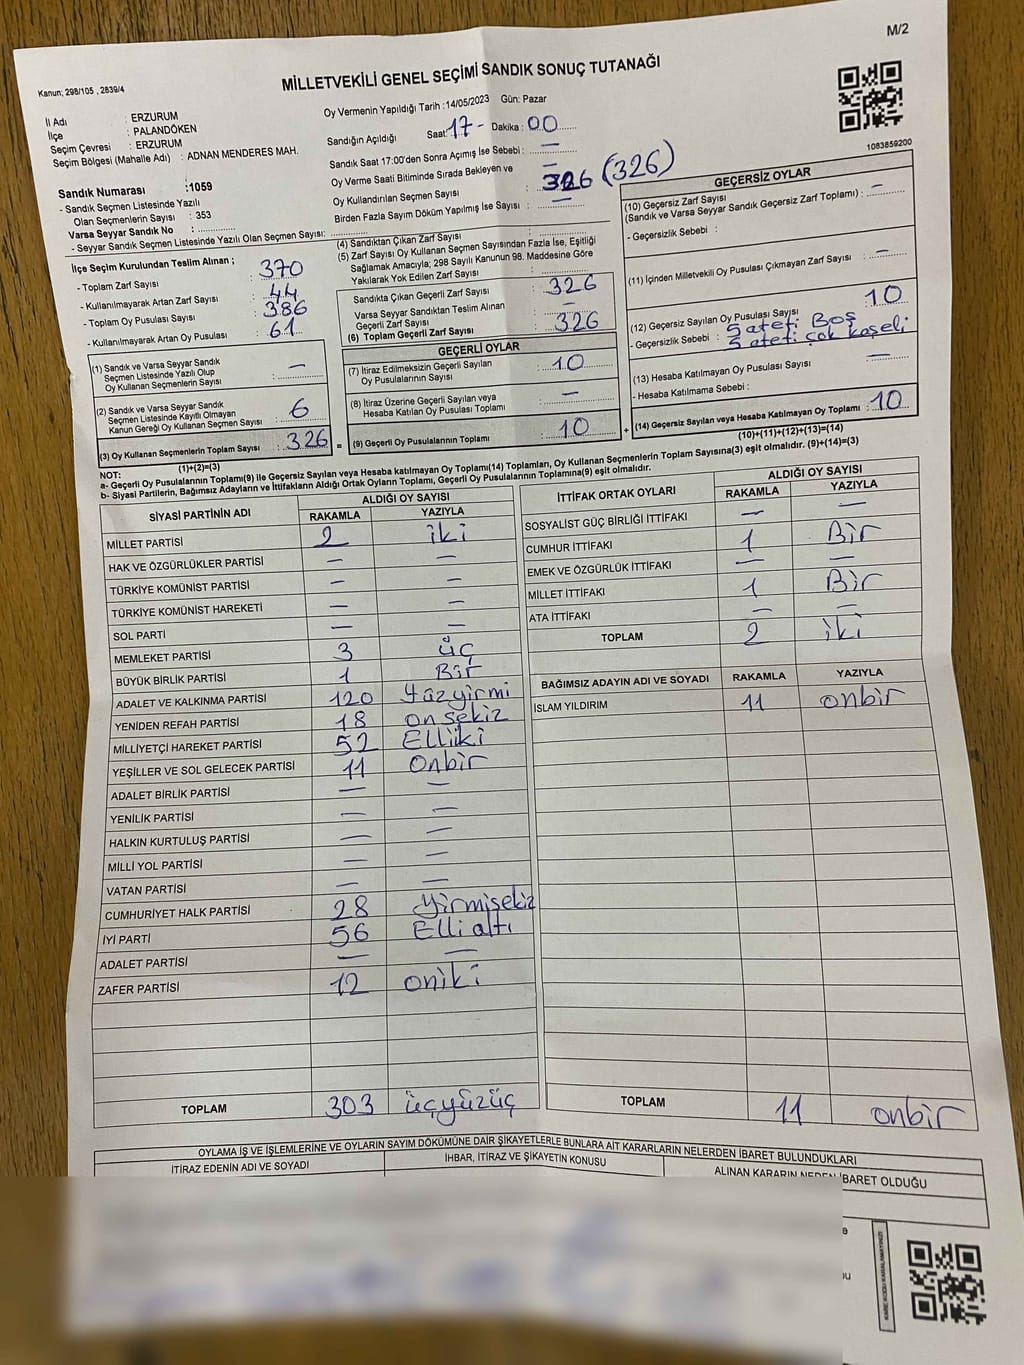 M/2
Kanun; 298/105 , 2839/4
MİLLETVEKİLİ GENEL SEÇİMİ SANDIK SONUÇ TUTANAĞI
1083859200
İl Adı : ERZURUM
İlçe : PALANDÖKEN
Seçim Çevresi : ERZURUM
Seçim Bölgesi (Mahalle Adı) : ADNAN MENDERES MAH.
Sandık Numarası :1059
- Sandık Seçmen Listesinde Yazılı
Olan Seçmenlerin Sayısı : 353
Varsa Seyyar Sandık No :
- Seyyar Sandık Seçmen Listesinde Yazılı Olan Seçmen Sayısı:
Oy Vermenin Yapıldığı Tarih :14/05/2023 Gün: Pazar
Sandığın Açıldığı Saat: 17- Dakika : 00
Sandık Saat 17:00'den Sonra Açımış İse Sebebi : —
Oy Verme Saati Bitiminde Sırada Bekleyen ve : —
Oy Kullandırılan Seçmen Sayısı : 326 (326)
Birden Fazla Sayım Döküm Yapılmış İse Sayısı : —
İlçe Seçim Kurulundan Teslim Alınan ;
- Toplam Zarf Sayısı : 370
- Kullanılmayarak Artan Zarf Sayısı : 44
- Toplam Oy Pusulası Sayısı : 386
- Kullanılmayarak Artan Oy Pusulası : 61
(1) Sandık ve Varsa Seyyar Sandık
Seçmen Listesinde Yazılı Olup
Oy Kullanan Seçmenlerin Sayısı : —
(2) Sandık ve Varsa Seyyar Sandık
Seçmen Listesinde Kayıtlı Olmayan
Kanun Gereği Oy Kullanan Seçmen Sayısı : 6
(3) Oy Kullanan Seçmenlerin Toplam Sayısı : 326
(1)+(2)=(3)
(4) Sandıktan Çıkan Zarf Sayısı :
(5) Zarf Sayısı Oy Kullanan Seçmen Sayısından Fazla İse, Eşitliği
Sağlamak Amacıyla; 298 Sayılı Kanunun 98. Maddesine Göre
Yakılarak Yok Edilen Zarf Sayısı :
Sandıkta Çıkan Geçerli Zarf Sayısı : 326
Varsa Seyyar Sandıktan Teslim Alınan
Geçerli Zarf Sayısı : —
(6) Toplam Geçerli Zarf Sayısı : 326
GEÇERLİ OYLAR
(7) İtiraz Edilmeksizin Geçerli Sayılan
Oy Pusulalarının Sayısı : 10
(8) İtiraz Üzerine Geçerli Sayılan veya
Hesaba Katılan Oy Pusulası Toplamı : —
(9) Geçerli Oy Pusulalarının Toplamı : 10
GEÇERSİZ OYLAR
(10) Geçersiz Zarf Sayısı
(Sandık ve Varsa Seyyar Sandık Geçersiz Zarf Toplamı) : —
- Geçersizlik Sebebi :
(11) İçinden Milletvekili Oy Pusulası Çıkmayan Zarf Sayısı : —
(12) Geçersiz Sayılan Oy Pusulası Sayısı : 10
- Geçersizlik Sebebi : 5 ateti Boş
5 ateti çok kaşeli
(13) Hesaba Katılmayan Oy Pusulası Sayısı : —
- Hesaba Katılmama Sebebi :
(14) Geçersiz Sayılan veya Hesaba Katılmayan Oy Toplamı : 10
(10)+(11)+(12)+(13)=(14)
NOT:
a- Geçerli Oy Pusulalarının Toplamı(9) ile Geçersiz Sayılan veya Hesaba katılmayan Oy Toplamı(14) Toplamları, Oy Kullanan Seçmenlerin Toplam Sayısına(3) eşit olmalıdır. (9)+(14)=(3)
b- Siyasi Partilerin, Bağımsız Adayların ve İttifakların Aldığı Ortak Oyların Toplamı, Geçerli Oy Pusulalarının Toplamına(9) eşit olmalıdır.
SİYASİ PARTİNİN ADI ALDIĞI OY SAYISI
RAKAMLA YAZIYLA
MİLLET PARTİSİ 2 iki
HAK VE ÖZGÜRLÜKLER PARTİSİ — —
TÜRKİYE KOMÜNİST PARTİSİ — —
TÜRKİYE KOMÜNİST HAREKETİ — —
SOL PARTİ — —
MEMLEKET PARTİSİ 3 üç
BÜYÜK BİRLİK PARTİSİ 1 Bir
ADALET VE KALKINMA PARTİSİ 120 Yüzyirmi
YENİDEN REFAH PARTİSİ 18 on sekiz
MİLLİYETÇİ HAREKET PARTİSİ 52 Elliiki
YEŞİLLER VE SOL GELECEK PARTİSİ 11 Onbir
ADALET BİRLİK PARTİSİ — —
YENİLİK PARTİSİ — —
HALKIN KURTULUŞ PARTİSİ — —
MİLLİ YOL PARTİSİ — —
VATAN PARTİSİ — —
CUMHURİYET HALK PARTİSİ 28 Yirmisekiz
İYİ PARTİ 56 Elli altı
ADALET PARTİSİ — —
ZAFER PARTİSİ 12 oniki
TOPLAM 303 üçyüzüç
İTTİFAK ORTAK OYLARI ALDIĞI OY SAYISI
RAKAMLA YAZIYLA
SOSYALİST GÜÇ BİRLİĞİ İTTİFAKI — —
CUMHUR İTTİFAKI 1 Bir
EMEK VE ÖZGÜRLÜK İTTİFAKI — —
MİLLET İTTİFAKI 1 Bir
ATA İTTİFAKI — —
TOPLAM 2 iki
BAĞIMSIZ ADAYIN ADI VE SOYADI RAKAMLA YAZIYLA
İSLAM YILDIRIM 11 onbir
TOPLAM 11 onbir
OYLAMA İŞ VE İŞLEMLERİNE VE OYLARIN SAYIM DÖKÜMÜNE DAİR ŞİKAYETLERLE BUNLARA AİT KARARLARIN NELERDEN İBARET BULUNDUKLARI
İTİRAZ EDENİN ADI VE SOYADI İHBAR, İTİRAZ VE ŞİKAYETİN KONUSU ALINAN KARARIN NEDEN İBARET OLDUĞU
KARE KODU KARALAMAYINIZ!